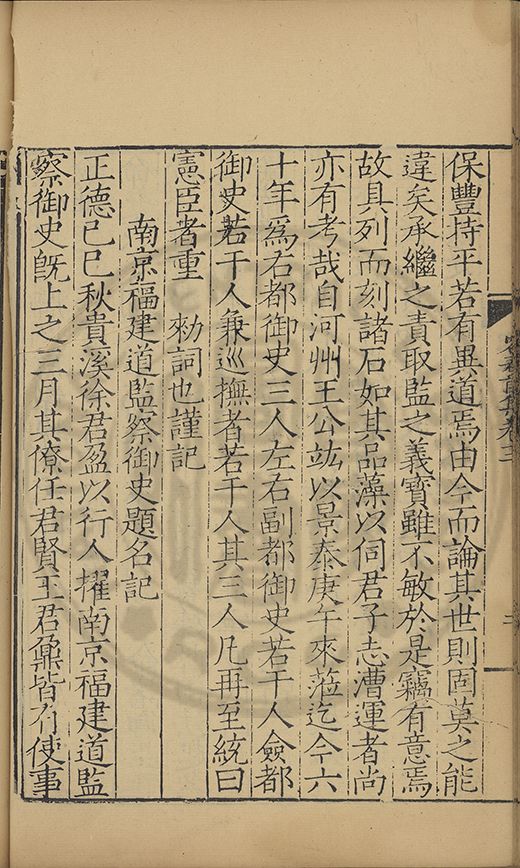 保豐持平若有異道焉由今而論其世則固莫之能
違矣承繼之責取監之義寶雖不敏於是竊有意焉
故具列而刻諸石如其品藻以伺君子志漕運者尚
亦有考哉自河州王公竑以景泰庚午來蒞迄今六
十年爲右都御史三人左右副都御史若干人僉都
御史若干人兼巡撫者若干人其三人凡再至統曰
憲臣者重　勑詞也謹記
南京福建道監察御史題名記
正德己巳秋貴溪徐君盈以行人擢南京福建道監
察御史旣上之三月其僚任君賢王君鼐皆有使事